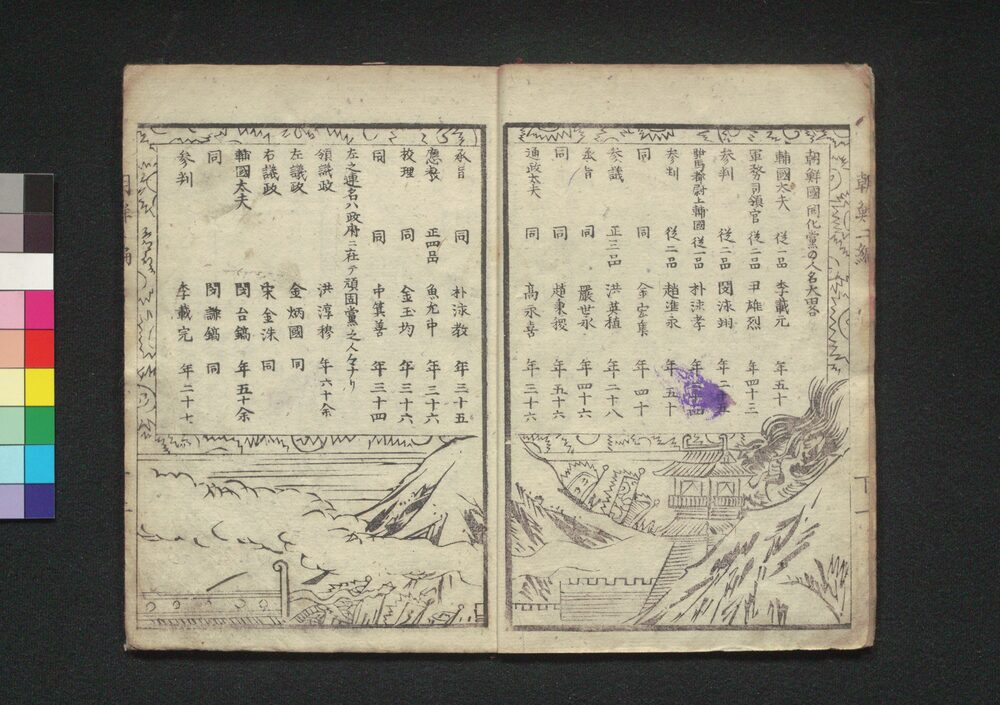 朝鮮國開化黨の人名大畧
輔國太夫 従一品 李載元 年五十
軍務司領官 従二品 尹雄烈 年四十三
參判 従二品 閔泳翊 年二
駙馬都尉上輔國 従一品 朴泳孝 年二十四
參判 従二品 趙準永 年五十
同 同 金宏集 年四十
參議 正三品 洪英植 年二十八
承旨 同 嚴世永 年四十六
同 同 趙秉稷 年五十六
通政太夫 同 高永喜 年三十六
承旨 同 朴泳教 年三十五
應教 正四品 魚允中 年三十六
校理 同 金玉均 年三十六
同 同 申箕善 年三十四
左之連名ハ政府ニ在テ頑固黨之人々ナリ
領議政 洪淳穆 年六十余
左議政 金炳國 同
右議政 宋金洙 同
輔國太夫 閔台鎬 年五十余
同 閔謙鎬 同
參判 李載完 年二十七